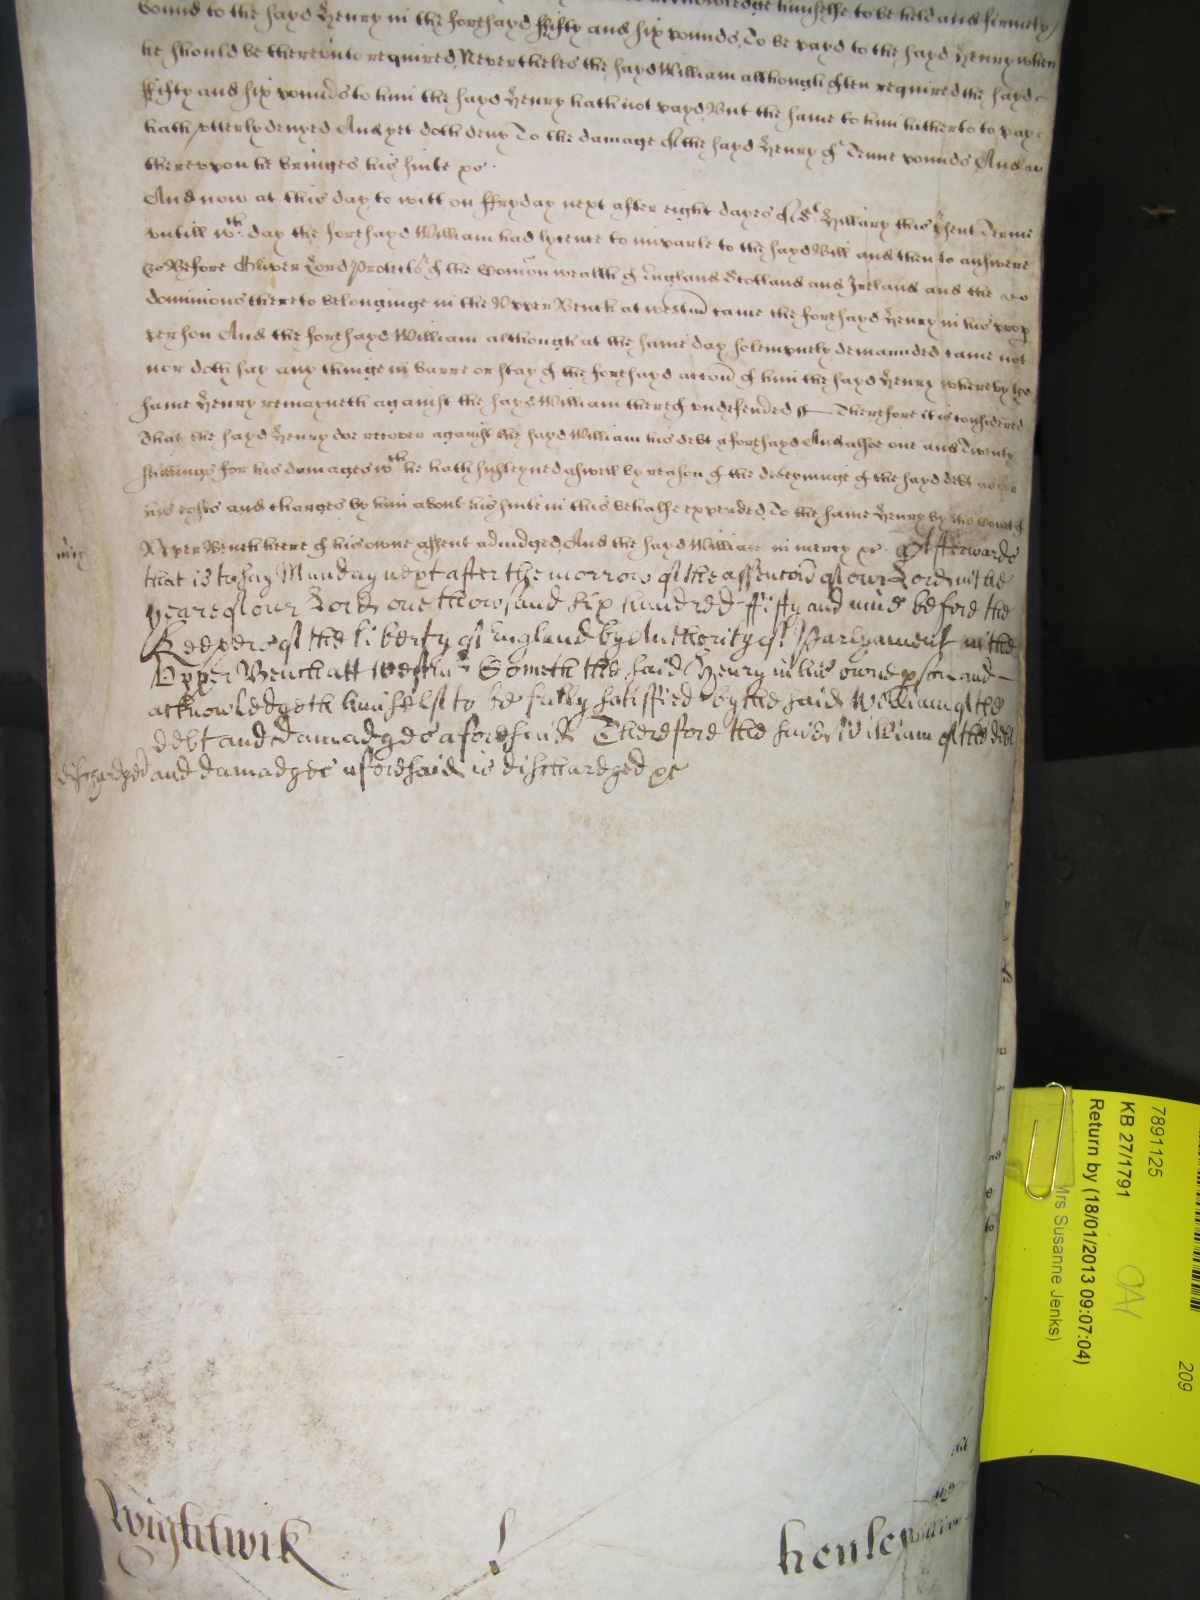 acknowledge himselfe to be held and firmely
bound to the sayd Henry in the foresayd ffifty and six pounds, To be payd to the sayd Henry when
he should be thereunto required, Neverthelesse the sayd William although often required the sayd
ffifty and six pounds to him the sayd Henry hath not payd But the same to him hitherto to pay
hath vtterly denyed And yet doth deny To the damage of the sayd Henry of Tenne pounds And
therevpon he bringes his suite &c.
And now at this day to witt on ffryday next after eight dayes of St. Hillary this same Terme
vntill wch. day the foresayd William had lycence to imparle to the sayd Bill and then to answere
&c Before Oliver Lord Protector of the Comon wealth of England Scotland and Ireland and the
dominions thereto belonginge in the Vpper Bench at Westm came the foresayd Henry in his prop
person And the foresayd William although at the same day solempnely demanded came not
nor doth say any thinge in barre or stay of the foresayd accon of him the sayd Henry whereby the
same Henry remayneth against the sayd William thereof vndefended Therefore it is considered
That the sayd Henry doe recover against the sayd William his debt aforesayd And alsoe one and Twenty
shillings for his damages wch he hath susteyned aswell by reason of the deteyninge of the sayd debt as for
his costs and charges by him about his suite in this behalfe expended, To the same Henry by the Court of
mercy
Vpper Bench heere of his owne assent adiudged, And the sayd William in mercy &c. Afterwards
that is to say Munday next after the morrow of the assencon of our Lord in the
yeare of our Lord one thowsand six hundred ffifty and nine before the
Keepers of the liberty of England by Authority of Parlyament in the
Vpper Bench att Westm Cometh the said Henry in his owne pson and
acknowledgeth himselfe to be fully satisfied by the said William of the
debt and damadges aforesaid Therefore the said William of the debt
dischardged and damadges aforesaid is dischardged &c
Wightwik
henley
William
7891125
KB 27/1791
Return by (18/01/2013 09:07:04)
Mrs Susanne Jenks)
209